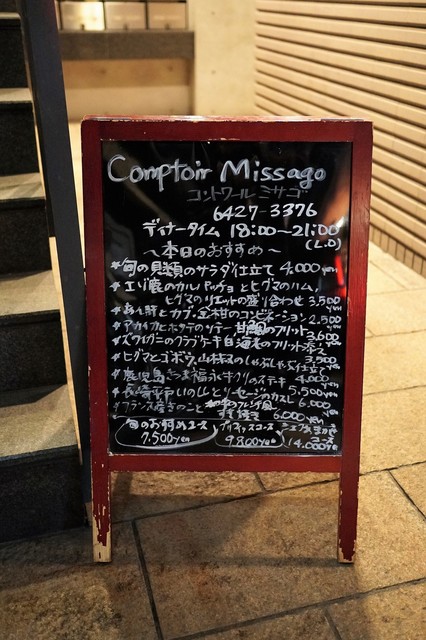 Comptoir Missago
コントワール ミサゴ
6427-3376
ディナータイム 18:00〜21:00
(L.O)
〜本日のおすすめ〜
*旬の貝類のサラダ仕立て 4.000yen
*エゾ鹿のカルパッチョとヒグマのハム,
ヒグマのリエットの盛り合わせ 3,500yen
*あん肝とカブ, のコンビネーション 2.500yen
*アカイカとホタテのソテー 甘鯛のフリット 3,600
*ズワイガニのクラブケーキ 白海老のフリット添え 3,500yen
*ヒグマとゴボウ, のしゃぶしゃぶ仕立て 4,000yen
*鹿児島 のステキ 5,500yen
*長崎 いのししとソーセージのカスレ 6,000yen
*フランス産きのこと すき焼き 6.000yen
旬のおすすめコース
7,500yen
プリフィックスコース
9.800yen
シェフおまかせコース
14.000yen